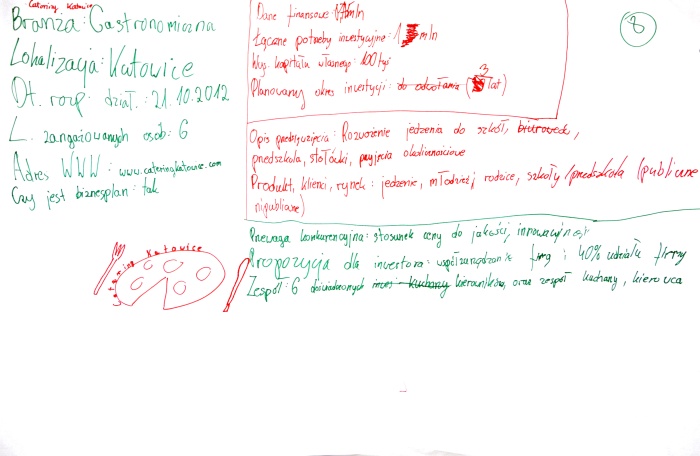 Catering Katowice
Branża: Gastronomiczna
Lokalizacja: Katowice
Dt. rozp. dział.: 21.10.2012
L. zangażowanych osób: 6
Adres WWW: www.cateringkatowice.com
Czy jest biznesplan: tak
Dane finansowe: 1 mln
Łączne potrzeby inwestycyjne: 1 mln
Wys. kapitału własnego: 100 tyś
3
Planowany okres inwestycji: do odwołania ( lat)
8
Opis przedsięwzięcia: Rozwożenie jedzenia do szkół, biurowców,
przedszkola, stołówki, przyjęcia okolicznościowe
Produkt, klienci, rynek: jedzenie, młodzież, rodzice, szkoły/przedszkola (publiczne
niepubliczne)
Przewaga konkurencyjna: stosunek ceny do jakości, innowacyjność
Propozycja dla inwestora: współzarządzanie firmą i 40% udziału firmy
Zespół: 6 doświadczonych kucharzy kierowników, oraz zespół kucharzy, kierowca
Catering Katowice